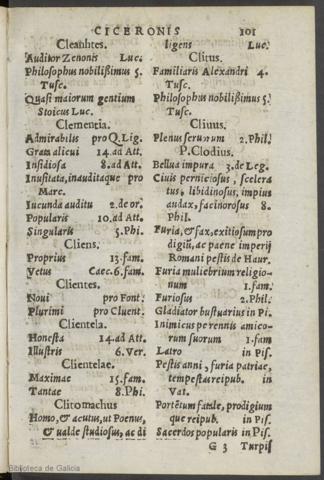 CICERONIS 101
Cleanhtes.
Auditor Zenonis Luc.
Philosophus nobilißimus 5.
Tusc.
Quasi maiorum gentium
Stoicus Luc.
Clementia.
Admirabilis pro Q. Lig.
Gratalicui 14. ad Att.
Insidiosa 8. ad Att.
Inusitata, inauditaque pro
Marc.
Iucunda auditu 2. de or.
Popularis 10. ad Att.
Singularis 5. Phi.
Cliens.
Proprius 13. fam.
Vetus Caec. 6. fam.
Clientes.
Noui pro Font.
Plurimi pro Cluent.
Clientela.
Honesta 14. ad Att.
Illustris 6. Ver.
Clientelae.
Maximae 15. fam.
Tantae 8. Phi.
Clitomachus
Homo, & acutus, ut Poenus,
& ualde studiosus, ac di
ligens Luc.
Clitus.
Familiaris Alexandri 4.
Tusc.
Philosophus nobilißimus 5.
Tusc.
Cliuus.
Plenus seruorum 2. Phil.
P. Clodius.
Bellua impura 3. de Leg.
Ciuis perniciosus, scelera
tus, libidinosus, impius
audax, facinorosus 8.
Phil.
Furia, & fax, exitiosum pro
digiũ, ac paene imperij
Romani pestis de Haur.
Furia muliebrium religio-
num 1. fam.
Furiosus 2. Phil.
Gladiator bustuarius in Pi.
Inimicus perennis amico-
rum suorum 1. fam
Latro in Pis.
Pestis anni, furia patriae,
tempestas reipub. in
Vat.
Portẽtum fatale, prodigium
que reipub. in Pis.
Sacerdos popularis in Pis.
G 3 Turpis
Biblioteca de Galicia